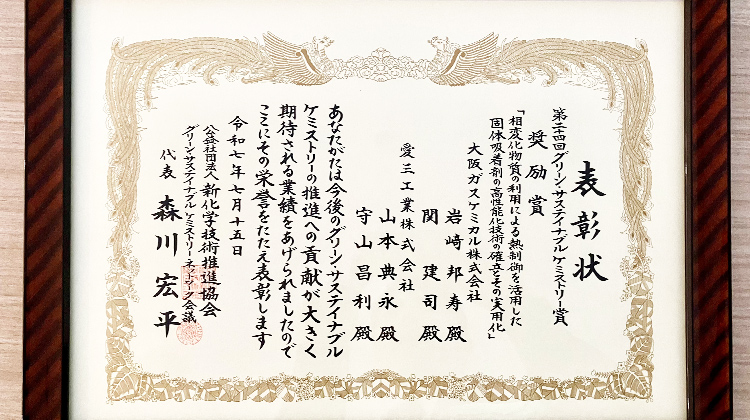 表彰状
第二十四回グリーン・サステイナブル ケミストリー賞
奨励賞
「相変化物質の利用による熱制御を活用した
固体吸着剤の高性能化技術の確立とその実用化」
大阪ガスケミカル株式会社
岩崎邦寿殿
関建司殿
愛三工業株式会社
山本典永殿
守山昌利殿
あなたがたは今後のグリーン・サステイナブル
ケミストリーの推進への貢献が大きく
期待される業績をあげられましたので
ここにその栄誉をたたえ表彰します
令和七年七月十五日
公益社団法人 新化学技術推進協会
グリーン・サステイナブル ケミストリー ネットワーク会議
代表 森川宏平